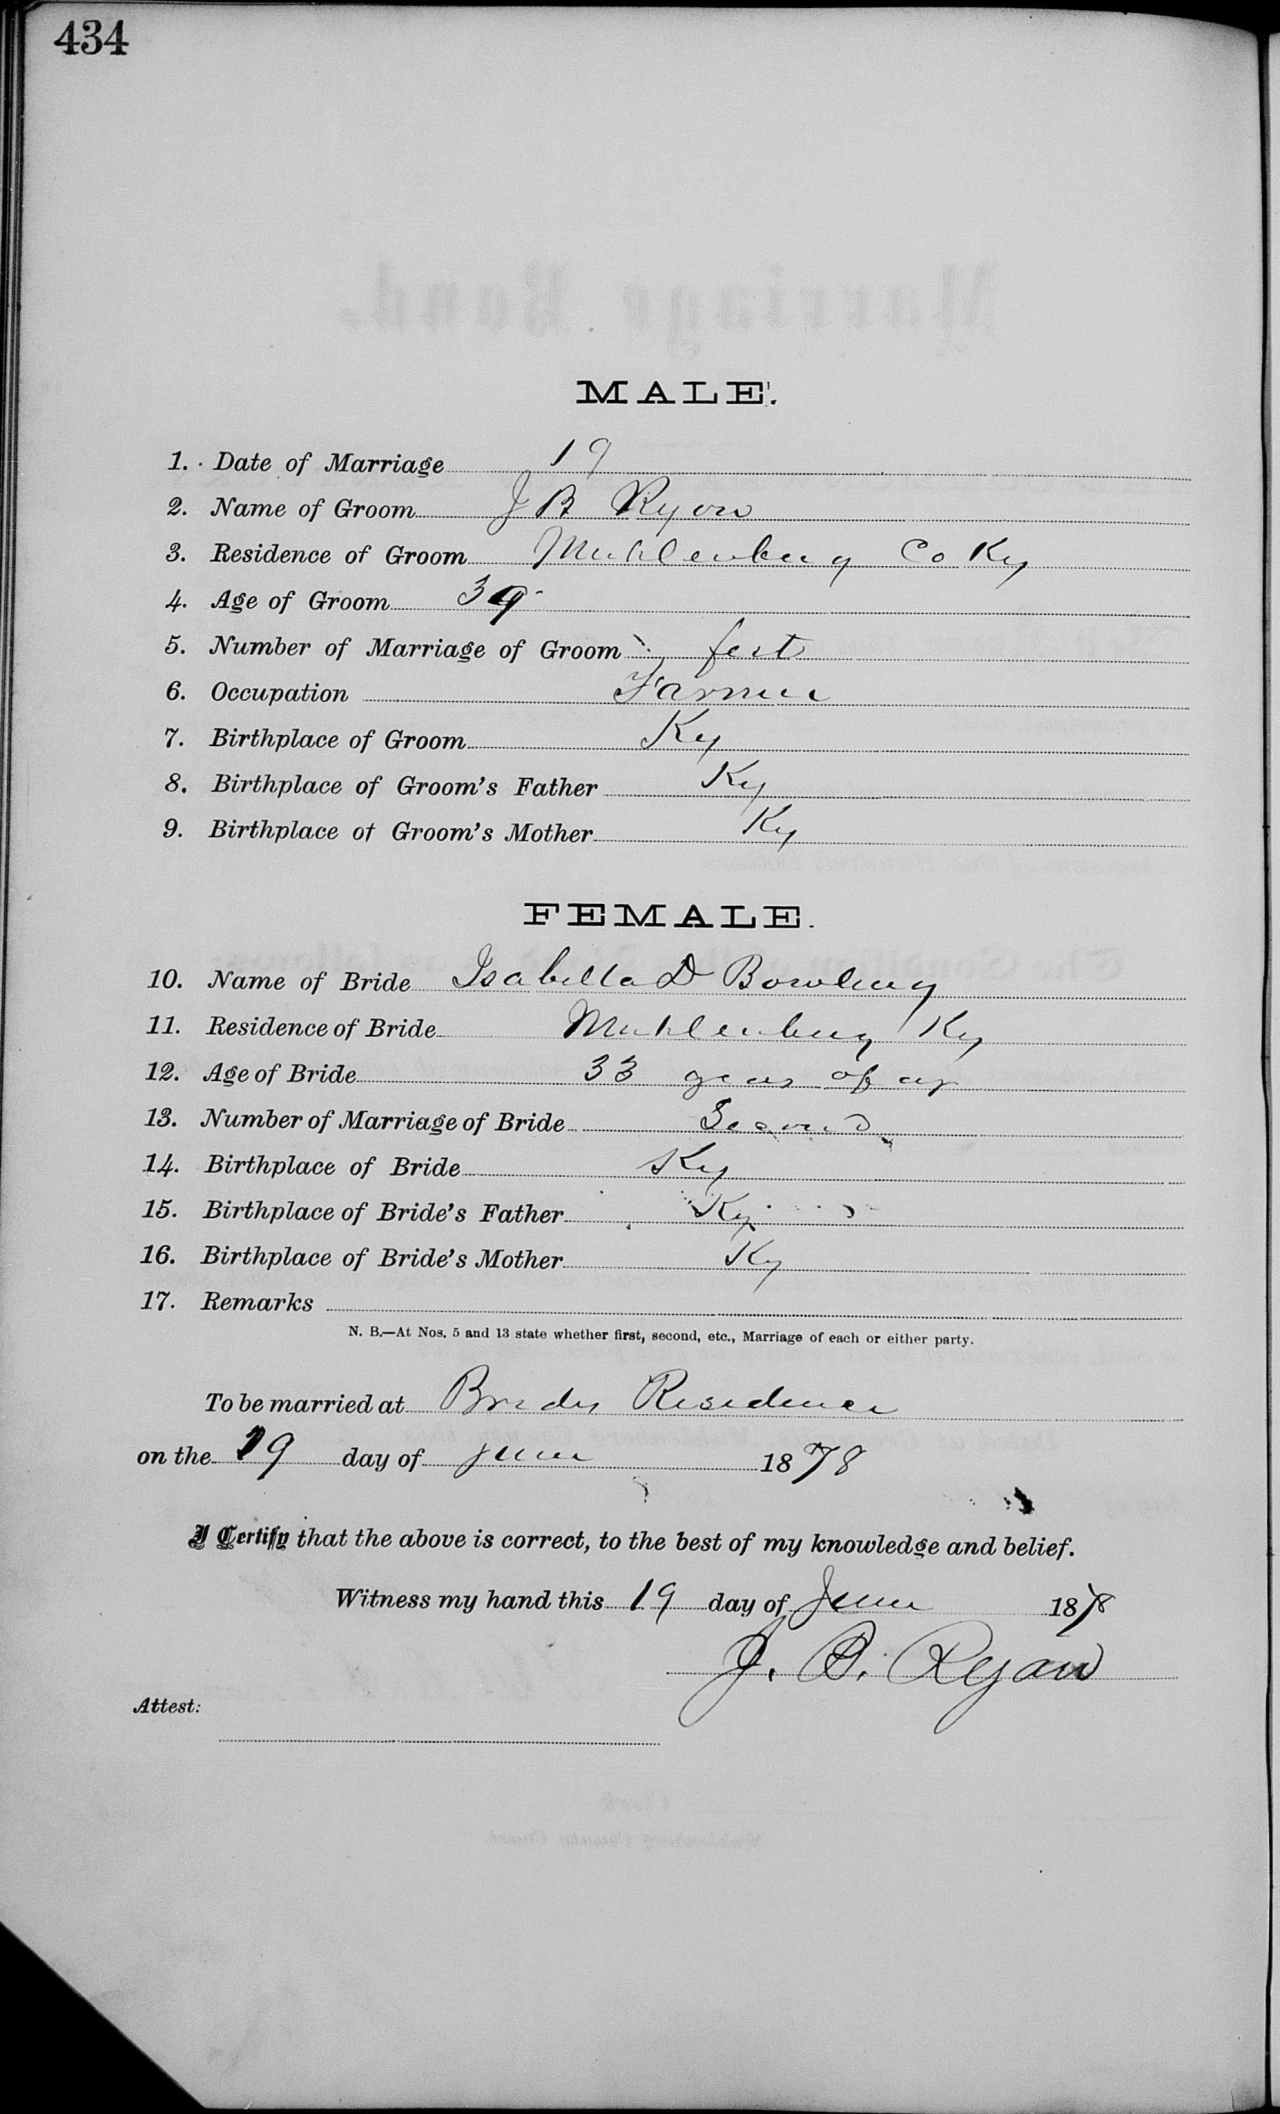 434
MALE.
1. Date of Marriage 19
2. Name of Groom J B Ryon
3. Residence of Groom Muhlenburg Co Ky
4. Age of Groom 39
5. Number of Marriage of Groom first
6. Occupation Farmer
7. Birthplace of Groom Ky
8. Birthplace of Groom's Father Ky
9. Birthplace of Groom's Mother Ky
FEMALE.
10. Name of Bride Isabella D Bowling
11. Residence of Bride Muhlenburg Ky
12. Age of Bride 33 years of age
13. Number of Marriage of Bride Second
14. Birthplace of Bride Ky
15. Birthplace of Bride's Father Ky
16. Birthplace of Bride's Mother Ky
17. Remarks
N. B.—At Nos. 5 and 13 state whether first, second, etc., Marriage of each or either party.
To be married at Brides Residence
on the 19 day of June 1878
I Certify that the above is correct, to the best of my knowledge and belief.
Witness my hand this 19 day of June 1878
J. B. Ryan
Attest: